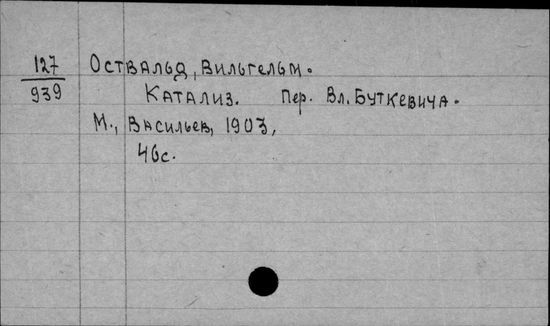 127 Оствальд, Вильгельм.
939
Катализ. Пер. Вл. Буткевича.
М., Васильев, 1903,
46с.